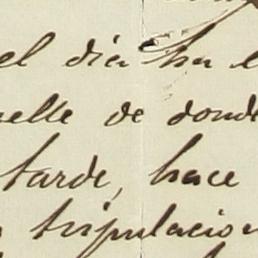 el dia ha
elle de donde
tarde, hace
tripulacion